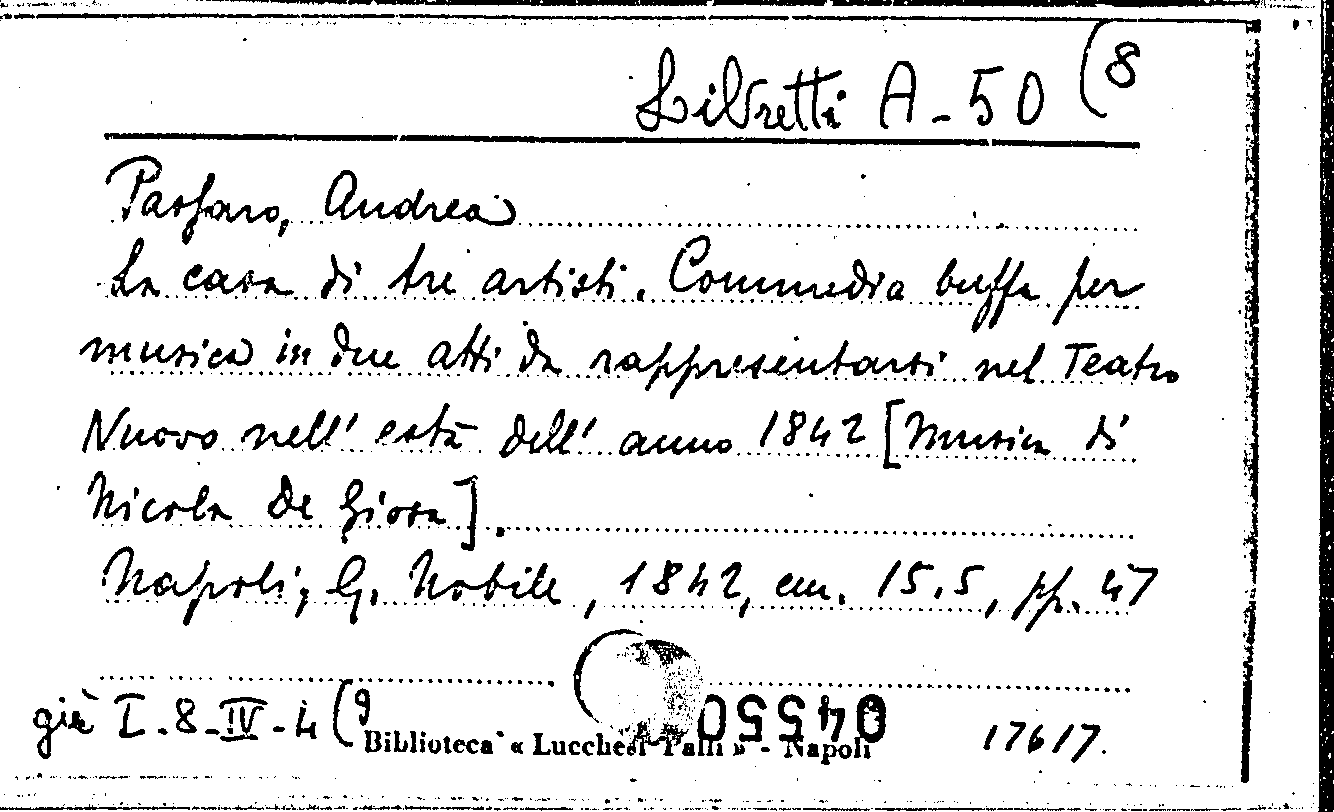 Libretti A-50 (8
Passaro, Andrea
La casa di tre artisti. Commedia buffa per
musica in due atti da rappresentarsi nel Teatro
Nuovo nell' està dell' anno 1842 [Musica di
Nicola De Giosa].
Napoli, G. Nobile, 1842, cm. 15.5, pp. 47
già I-8-IV-4 (9
Biblioteca « Lucchesi Palli » - Napoli
04550
17617.